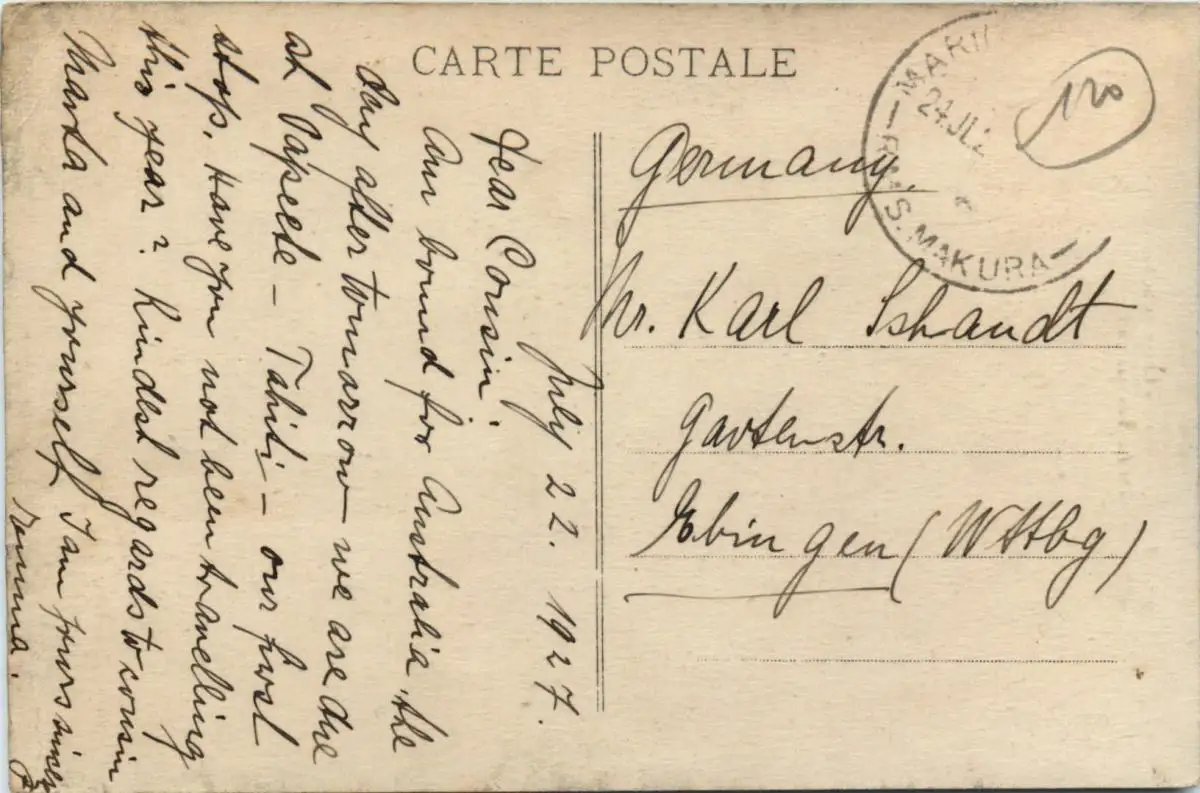 CARTE POSTALE
July 22. 1927.
Dear Cousin:
Am bound for Australia the
day after tomorrow we are due
at Papeete — Tahiti — our first
stop. Have you not been travelling
this year? Kindest regards to cousin
and yourself, I am yours
MARI
24 JL
R.M.S. MAKURA
120
Germany.
Mr. Karl Schandt
Gartenstr.
Ebingen (Wttbg)